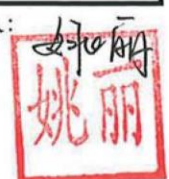 :姚丽
姚丽